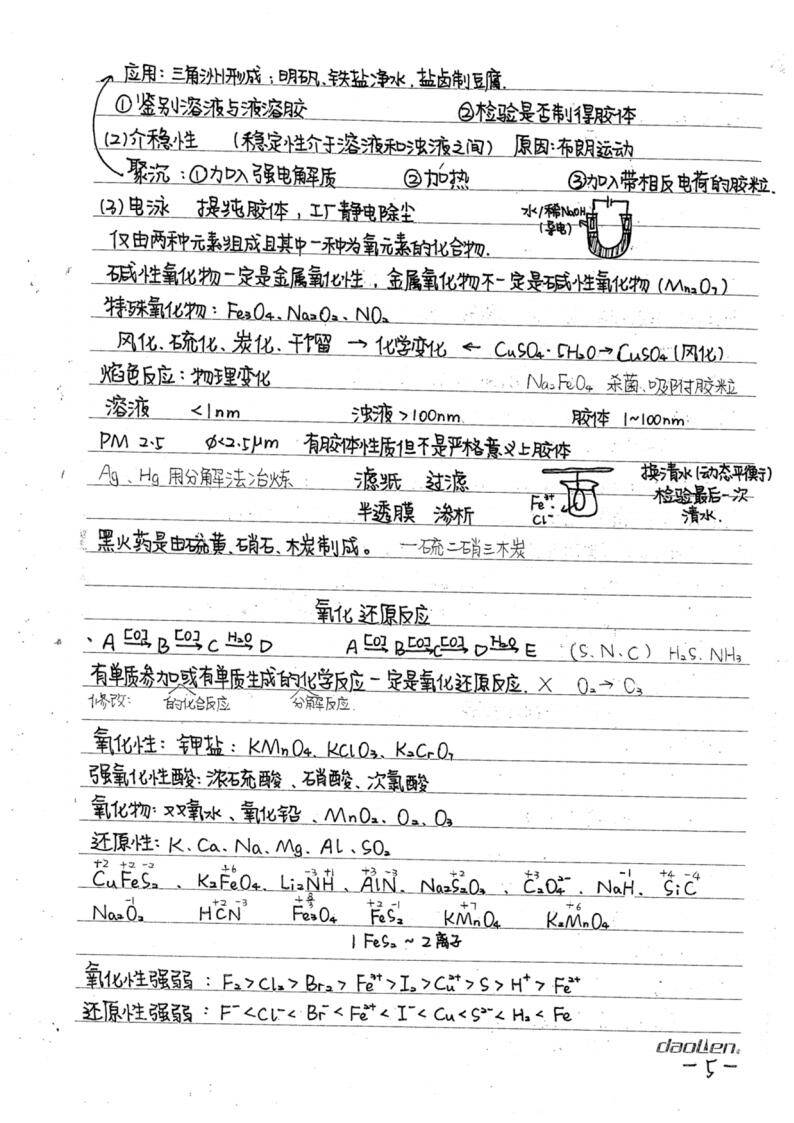 应用：三角洲形成；明矾、铁盐净水，盐卤制豆腐.
①鉴别溶液与液溶胶 ②检验是否制得胶体
(2)介稳性 (稳定性介于溶液和浊液之间) 原因：布朗运动
聚沉：①加入强电解质 ②加热 ③加入带相反电荷的胶粒.
(3)电泳 提纯胶体，工厂静电除尘 水/稀NaOH
(导电)
仅由两种元素组成且其中一种为氧元素的化合物.
碱性氧化物一定是金属氧化性，金属氧化物不一定是碱性氧化物(Mn₂O₇)
特殊氧化物：Fe₃O₄、Na₂O₂、NO₂
风化、硫化、炭化、干馏 → 化学变化 ← CuSO₄·5H₂O→CuSO₄(风化)
焰色反应：物理变化 Na₂FeO₄ 杀菌、吸附胶粒
溶液 <1nm 浊液>100nm 胶体 1~100nm
PM 2.5 φ<2.5μm 有胶体性质但不是严格意义上胶体
Ag、Hg 用分解法冶炼 滤纸 过滤 换清水(动态平衡)
半透膜 渗析 Fe³⁺ Cl⁻ 检验最后一次
清水.
黑火药是由硫黄、硝石、木炭制成。 一硫二硝三木炭
氧化还原反应
、A [O]→ B [O]→ C H₂O→ D A [O]→ B [O]→ C [O]→ D H₂O→ E (S、N、C) H₂S、NH₃
有单质参加或有单质生成的化学反应一定是氧化还原反应. × O₂→O₃
修改： 的化合反应 分解反应
氧化性：钾盐：KMnO₄、KClO₃、K₂CrO₇
强氧化性酸：浓硫酸、硝酸、次氯酸
氧化物：双氧水、氧化铅、MnO₂、O₂、O₃
还原性：K、Ca、Na、Mg、Al、SO₂
+2 +2 -2 +6 -3 +1 +3 -3 +2 +3 -1 +4 -4
CuFeS₂、K₂FeO₄、Li₂NH、AlN、Na₂S₂O₃、C₂O₄²⁻、NaH、SiC
-1 +2 -3 +8/3 +2 -1 +7 +6
Na₂O₂ HCN Fe₃O₄ FeS₂ KMnO₄ K₂MnO₄
1 FeS₂ ~ 2离子
氧化性强弱：F₂>Cl₂>Br₂>Fe³⁺>I₂>Cu²⁺>S>H⁺>Fe²⁺
还原性强弱：F⁻<Cl⁻<Br⁻<Fe²⁺<I⁻<Cu<S²⁻<H₂<Fe
daolen
-5-